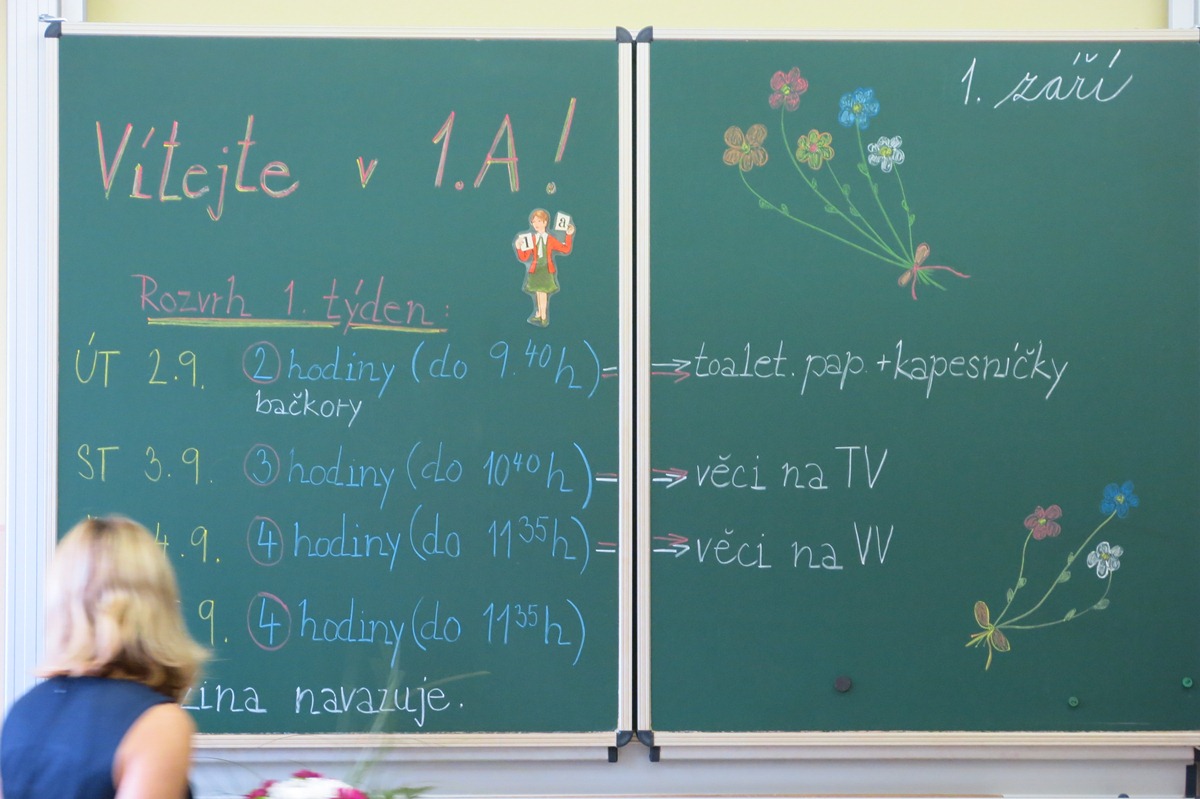 Vítejte v 1.A!
1 a
Rozvrh 1. týden:
ÚT 2.9. 2 hodiny (do 9.40h)
bačkory
ST 3.9. 3 hodiny (do 10 40 h)
4.9. 4 hodiny (do 11 35 h)
9. 4 hodiny (do 11 35 h)
navazuje.
1. září
toalet. pap. + kapesníčky
věci na TV
věci na VV